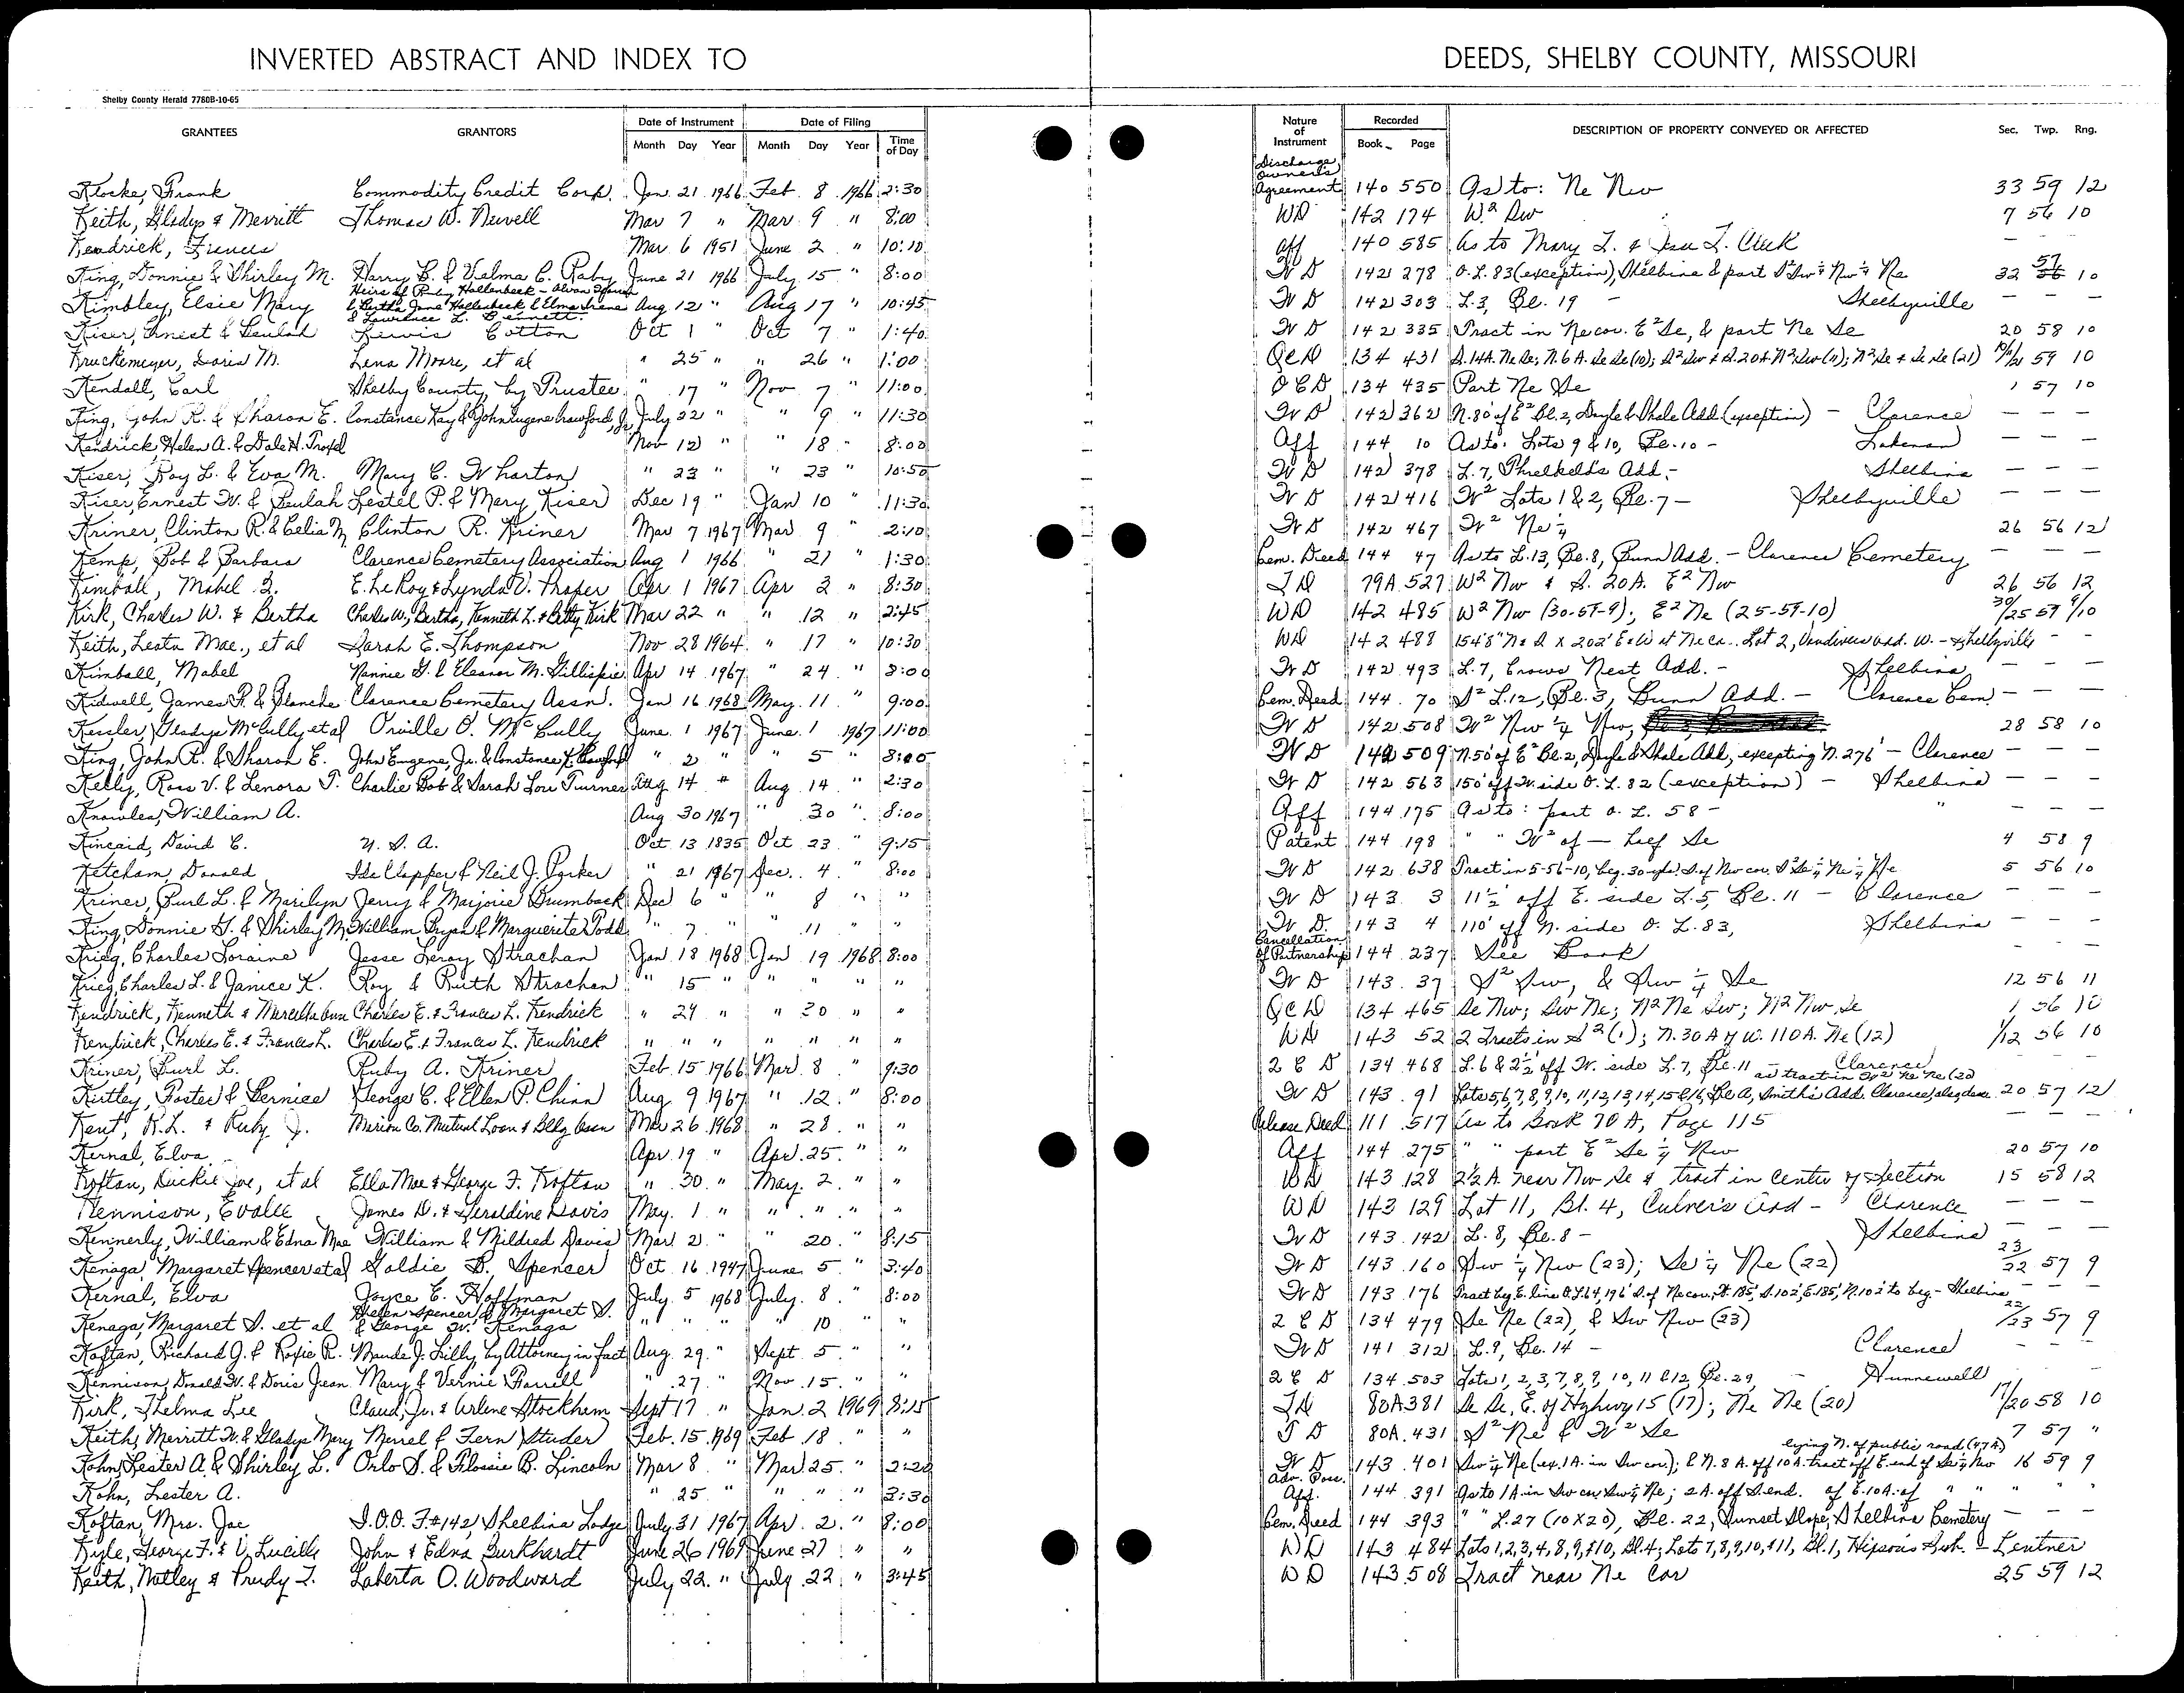 INVERTED ABSTRACT AND INDEX TO DEEDS, SHELBY COUNTY, MISSOURI
Shelby County Herald 7780B-10-65
GRANTEES GRANTORS Date of Instrument Date of Filing Nature of Instrument Recorded DESCRIPTION OF PROPERTY CONVEYED OR AFFECTED Sec. Twp. Rng.
Month Day Year Month Day Year Time of Day Book Page
Klocke, Frank Commodity Credit Corp. Jan. 21 1966 Feb. 8 1966 2:30 Discharge Owner's Agreement 140 550 As to: Ne Nw 33 59 12
Keith, Gladys & Merritt Thomas W. Newell Mar 7 " Mar 9 " 8:00 WD 142 174 W² Sw 7 56 10
Kendrick, Frances Mar 6 1951 June 2 " 10:10 Aff 140 585 As to Mary L. & L. Cleek — —
King, Donnie & Shirley M. Harry B. & Velma C. Raby June 21 1966 July 15 " 8:00 WD 142 278 O.L. 83 (exception), Shelbina & part S² Sw¼ Nw¼ Ne 32 57 10
Kimbley, Elsie Mary Heirs of Ruby Hollenbeck - & Bertha Jane Hollenbeck & Elma Irene & Lawrence L. Bennett. Aug 12 " Aug 17 " 10:45 WD 142 303 L.3, Bl. 19 — Shelbyville — — —
Kiser, Ernest & Beulah Lewis Cotton Oct 1 " Oct 7 " 1:40 WD 142 335 Tract in Ne cor. E² Se, & part Ne Se 20 58 10
Kruckemeyer, Doris M. Lena Moore, et al " 25 " " 26 " 1:00 QCD 134 431 S. 14A. Ne Se; N. 6 A. Se Se (10); S² Sw & S. 20A. N² Sw (11); N² Se & Se Se (21) 10/11/21 59 10
Kendall, Carl Shelby County, by Trustee " 17 " Nov 7 " 11:00 QCD 134 435 Part Ne Se 1 57 10
King, John R. & Sharon E. Constance Kay & John Eugene Crawford, Jr. July 22 " " 9 " 11:30 WD 142 362 N. 80' of E² Bl. 2, Doyle & Shale Add. (exception) — Clarence — — —
Kendrick, Helen A. & Dale H. Troxel Nov 12 " " 18 " 8:00 Aff 144 10 As to: Lots 9 & 10, Bl. 10 - Lakenan — — —
Kiser, Roy L. & Eva M. Mary C. Wharton " 23 " " 23 " 10:50 WD 142 378 L. 7, Threlkeld's Add. - Shelbina — — —
Kiser, Ernest W. & Beulah Lestel P. & Mary Kiser Dec 19 " Jan 10 " 11:30 WD 142 416 W² Lots 1 & 2, Bl. 7 — Shelbyville — — —
Kriner, Clinton R. & Celia M. Clinton R. Kriner Mar 7 1967 Mar 9 " 2:10 WD 142 467 W² Ne¼ 26 56 12
Kemp, Bob & Barbara Clarence Cemetery Association Aug 1 1966 " 21 " 1:30 Cem. Deed 144 47 As to L. 13, Bl. 8, Bunn Add. - Clarence Cemetery — — —
Kimball, Mabel E. LeRoy & Lynda V. Thaper Apr 1 1967 Apr 3 " 8:30 TD 79A 527 W² Nw & S. 20A. E² Nw 26 56 12
Kirk, Charles W. & Bertha Charles W., Bertha, Kenneth L. & Betty Kirk Mar 22 " " 12 " 2:45 WD 142 485 W² Nw (30-59-9); E² Ne (25-59-10) 30/25 59 9/10
Keith, Leatn Mae., et al Sarah E. Thompson Nov 28 1964 " 17 " 10:30 WD 142 488 154'8" N & S x 202' E & W at Ne Co.. Lot 2, Vandivers Add. W. - Shelbyville — —
Kimball, Mabel Nannie G. & Eleanor M. Gillispie Apr 14 1967 " 24 " 8:00 WD 142 493 L. 7, Crows Nest Add. - Shelbina — — —
Kidwell, James R. & Blanche Clarence Cemetery Assn. Jan 16 1968 May 11 " 9:00 Cem. Deed 144 70 S² L. 12, Bl. 3, Bunn Add. — Clarence Cem. — — —
Kessler, Gladys McCully et al Orville O. McCully June 1 1967 June 1 1967 11:00 WD 142 508 W² Nw ¼ Nw, 28 58 10
King, John R. & Sharon E. John Eugene, Jr. & Constance K. Crawford " 2 " " 5 " 8:00 WD 142 509 N. 50' of E² Bl. 2, Doyle & Shale Add., excepting N. 27 6' — Clarence — — —
Kelly, Ross V. & Lenora T. Charlie Bob & Sarah Lou Turner Aug 14 " Aug. 14 " 2:30 WD 142 563 150' off W. side O. L. 82 (exception) — Shelbina — — —
Knowles, William A. Aug 30 1967 " 30 " 8:00 Aff 144 175 As to: part O. L. 58 - " — — —
Kincaid, David C. U. S. A. Oct. 13 1835 Oct. 23 " 9:15 Patent 144 198 " " W² of — half Se 4 58 9
Ketcham, Donald Ida Clapper & Neil J. Parker " 21 1967 Dec. 4 " 8:00 WD 142 638 Tract in 5-56-10, beg. 30 yds. S. of Nw cor. S² Se¼ Ne¼ Ne 5 56 10
Kriner, Burl L. & Marilyn Jerry & Marjorie Brumback Dec 6 " " 8 " " WD 143 3 11½' off E. side L. 5, Bl. 11 — Clarence — — —
King, Donnie G. & Shirley M. William Bryan & Marguerite Todd " 7 " " 11 " " WD. 143 4 110' off N. side O. L. 83, Shelbina — — —
Krieg, Charles Loraine Jesse Leroy Strachan Jan. 18 1968 Jan 19 1968 8:00 Cancellation of Partnership 144 237 See Book — — —
Krieg, Charles L. & Janice K. Roy & Ruth Strachan " 15 " " " " " WD 143 37 S² Sw, & Sw ¼ Se 12 56 11
Kendrick, Kenneth & Marcella Ann Charles E. & Frances L. Kendrick " 29 " " 30 " " QCD 134 465 Se Nw; Sw Ne; N² Ne Sw; N² Nw Se 1 56 10
Kendrick, Charles E. & Frances L. Charles E. & Frances L. Kendrick " " " " " " " WD 143 52 2 Tracts in S² (1); N. 30 A of W. 110 A. Ne (12) 1/12 56 10
Kriner, Burl L. Ruby A. Kriner Feb. 15 1966 Mar. 8 " 9:30 QCD 134 468 L. 6 & 2½' off W. side L. 7, Bl. 11 — Clarence
Kirtley, Foster & Bernice George C. & Ellen P. Chinn Aug 9 1967 " 12 " 8:00 WD 143 91 Lots 5,6,7,8,9,10,11,12,13,14,15 & 16, Bl. A, Smith's Add. Clarence, 20 57 12
Kent, R.L. & Ruby J. Marion Co. Mutual Loan & Bldg Assn Mar 26 1968 " 28 " " Release Deed 111 517 As to Book 70 A, Page 115 — — —
Kernal, Elva Apr. 19 " Apr. 25 " " Aff 144 275 " " part E² Se ¼ Nw 20 57 10
Koftan, Dickie Joe, et al Ella Mae & George F. Koftan " 30 " May. 2 " " WD 143 128 2½ A. near Nw Se & tract in Center of Section 15 58 12
Kennison, Evalee James D. & Geraldine Davis May. 1 " " " " " WD 143 129 Lot 11, Bl. 4, Culver's Add - Clarence — — —
Kennerly, William & Edna Mae William & Mildred Davis Mar. 2 " " 20 " 8:15 WD 143 142 L. 8, Bl. 8 - Shelbina — — —
Kenaga Margaret Spencer et al Goldie B. Spencer Oct. 16 1947 June 5 " 3:40 WD 143 160 Sw ¼ Nw (23); Se ¼ Ne (22) 23/22 57 9
Kernal, Elva Joyce E. Hoffman July. 5 1968 July. 8 " 8:00 WD 143 176 Tract beg. E. line O.L. 64, 196' S. of Ne cor., W. 185', S. 102', E. 185', N. 102' to beg. - Shelbina — —
Kenaga, Margaret S. et al Helen Spencer & Margaret S. & George W. Kenaga " " " " 10 " " QCD 134 479 Se Ne (22), & Sw Nw (23) 22/23 57 9
Koftan, Richard J. & Roxie R. Maude J. Lilly, by Attorney in fact Aug. 29 " Sept. 5 " " WD 141 312 L. 9, Bl. 14 — Clarence — — —
Kennison, Donald W. & Doris Jean Mary & Vernie Farrell " 27 " Nov. 15 " " QCD 134 503 Lots 1, 2, 3, 7, 8, 9, 10, 11 & 12, Bl. 29, - Hunnewell
Kirk, Thelma Lee Claud, Jr. & Arlene Stockhem Sept 17 " Jan. 2 1969 8:15 TD 80A 381 Se Se, E. of Highway 15 (17); Ne Ne (20) 17/20 58 10
Keith, Merritt W. & Gladys Mary Merrel & Fern Studer Feb. 15 1969 Feb 18 " " TD 80A 431 S² Ne & W² Se 7 57 "
Kohn, Lester A. & Shirley L. Orlo S. & Flossie B. Lincoln Mar 8 " Mar 25 " 2:20 WD 143 401 Sw ¼ Ne (ex. 1A. in Sw cor.); & N. 8 A. off 10 A. tract off E. end of Se ¼ Nw lying N. of public road 16 59 9
Kohn, Lester A. " 25 " " " " 3:30 Adv. Poss. Aff. 144 391 As to 1A. in Sw cor. Sw¼ Ne; 2 A. off S. end. of E. 10 A. of " " " " "
Koftan, Mrs. Joe I.O.O.F. #142, Shelbina Lodge July. 31 1967 Apr. 2 " 8:00 Cem. Deed 144 393 " " L. 27 (10 x 20), Bl. 22, Sunset Slope, Shelbina Cemetery — — —
Kyle, George F. & V. Lucille John & Edna Burkhardt June 26 1969 June 27 " " WD 143 484 Lots 1,2,3,4,8,9, & 10, Bl. 4; Lots 7,8,9,10, & 11, Bl. 1, Hipson's Sub. — Lentner
Keith, Notley & Prudy I. Laberta O. Woodward July 22. " July 22 " 3:45 WD 143 508 Tract near Ne Cor 25 59 12